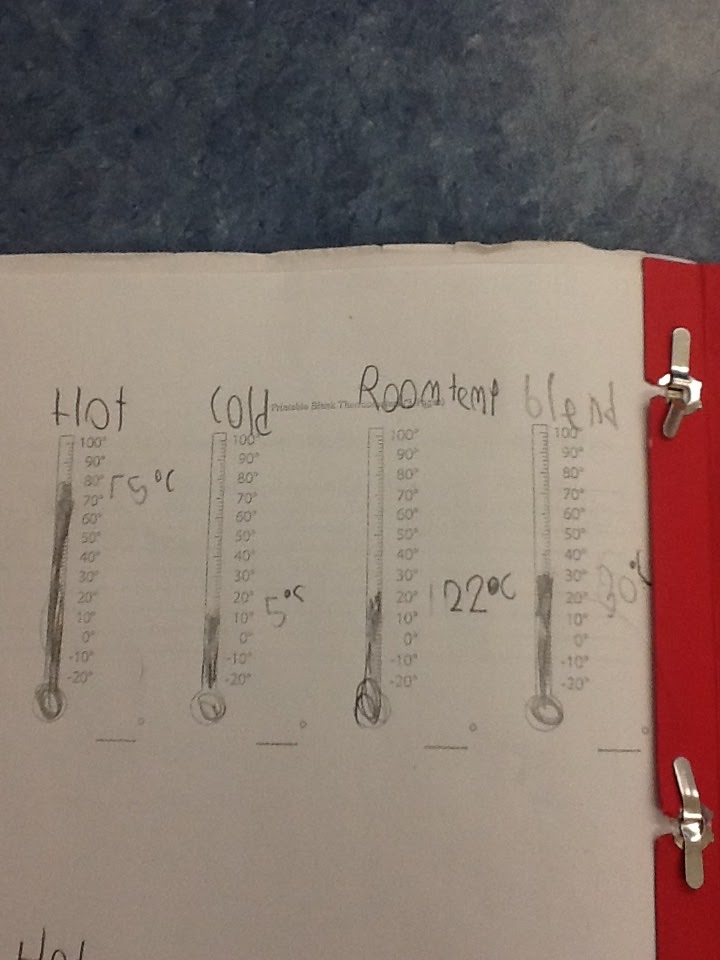 Hot Cold Room temp blend
Printable Blank Thermometer
100° 100° 100° 100°
90° 90° 90° 90°
80° 80° 80° 80°
70° 70° 70° 70°
60° 60° 60° 60°
50° 50° 50° 50°
40° 40° 40° 40°
30° 30° 30° 30°
20° 20° 20° 20°
10° 10° 10° 10°
0° 0° 0° 0°
-10° -10° -10° -10°
-20° -20° -20° -20°
5°C 22°C 30°C
Hot